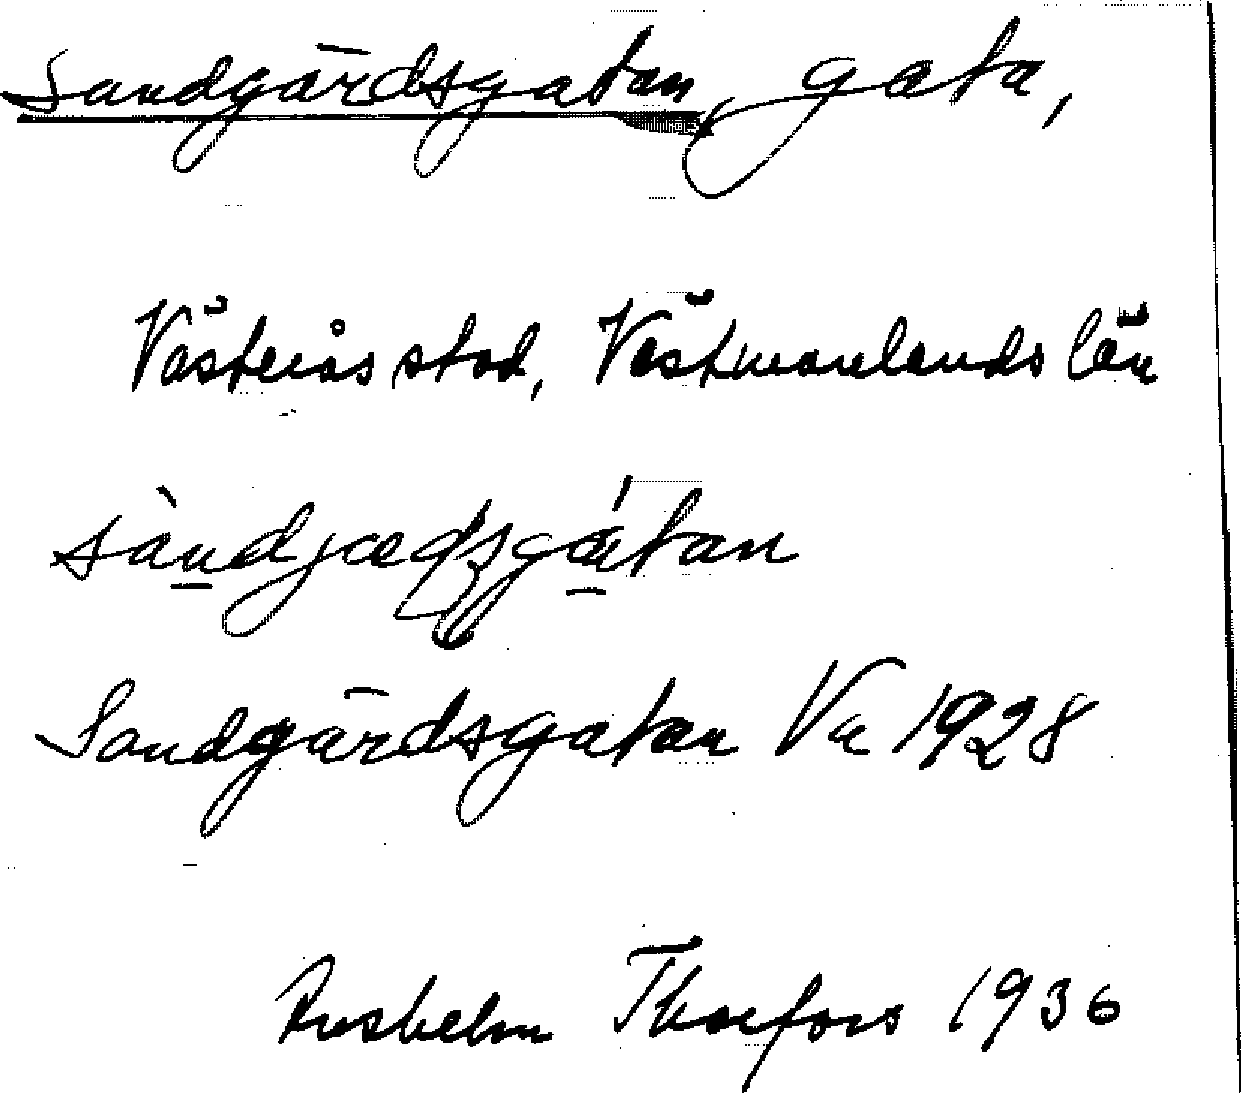 Sandgärdsgatan, gata,
Västerås stad, Västmanlands län
Sandgärdsgatan Va 1928
Thorfors 1936